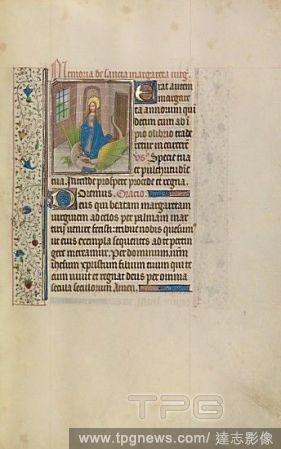 Memoria de sancta margareta virg
Erat autem
margare
ta annorum qui
decim cum ab i
pio olibrio trade
retur in carcerem
Specie tua
et pulchritudine
tua. Intende prospere procede et regna.
Oremus. Oracio.
Deus qui beatam margaretam
virginem ad celos per palmam mar
tirij venire fecisti tribue nobis quesumus
ut eius exempla sequentes ad te pertin
gere mereamur. Per dominum nrm
ihesum xpristum filium tuum qui te
cum vivit et regnat deus per omnia
secula seculorum Amen.
TPG
www.tpgnews.com/ 達志影像